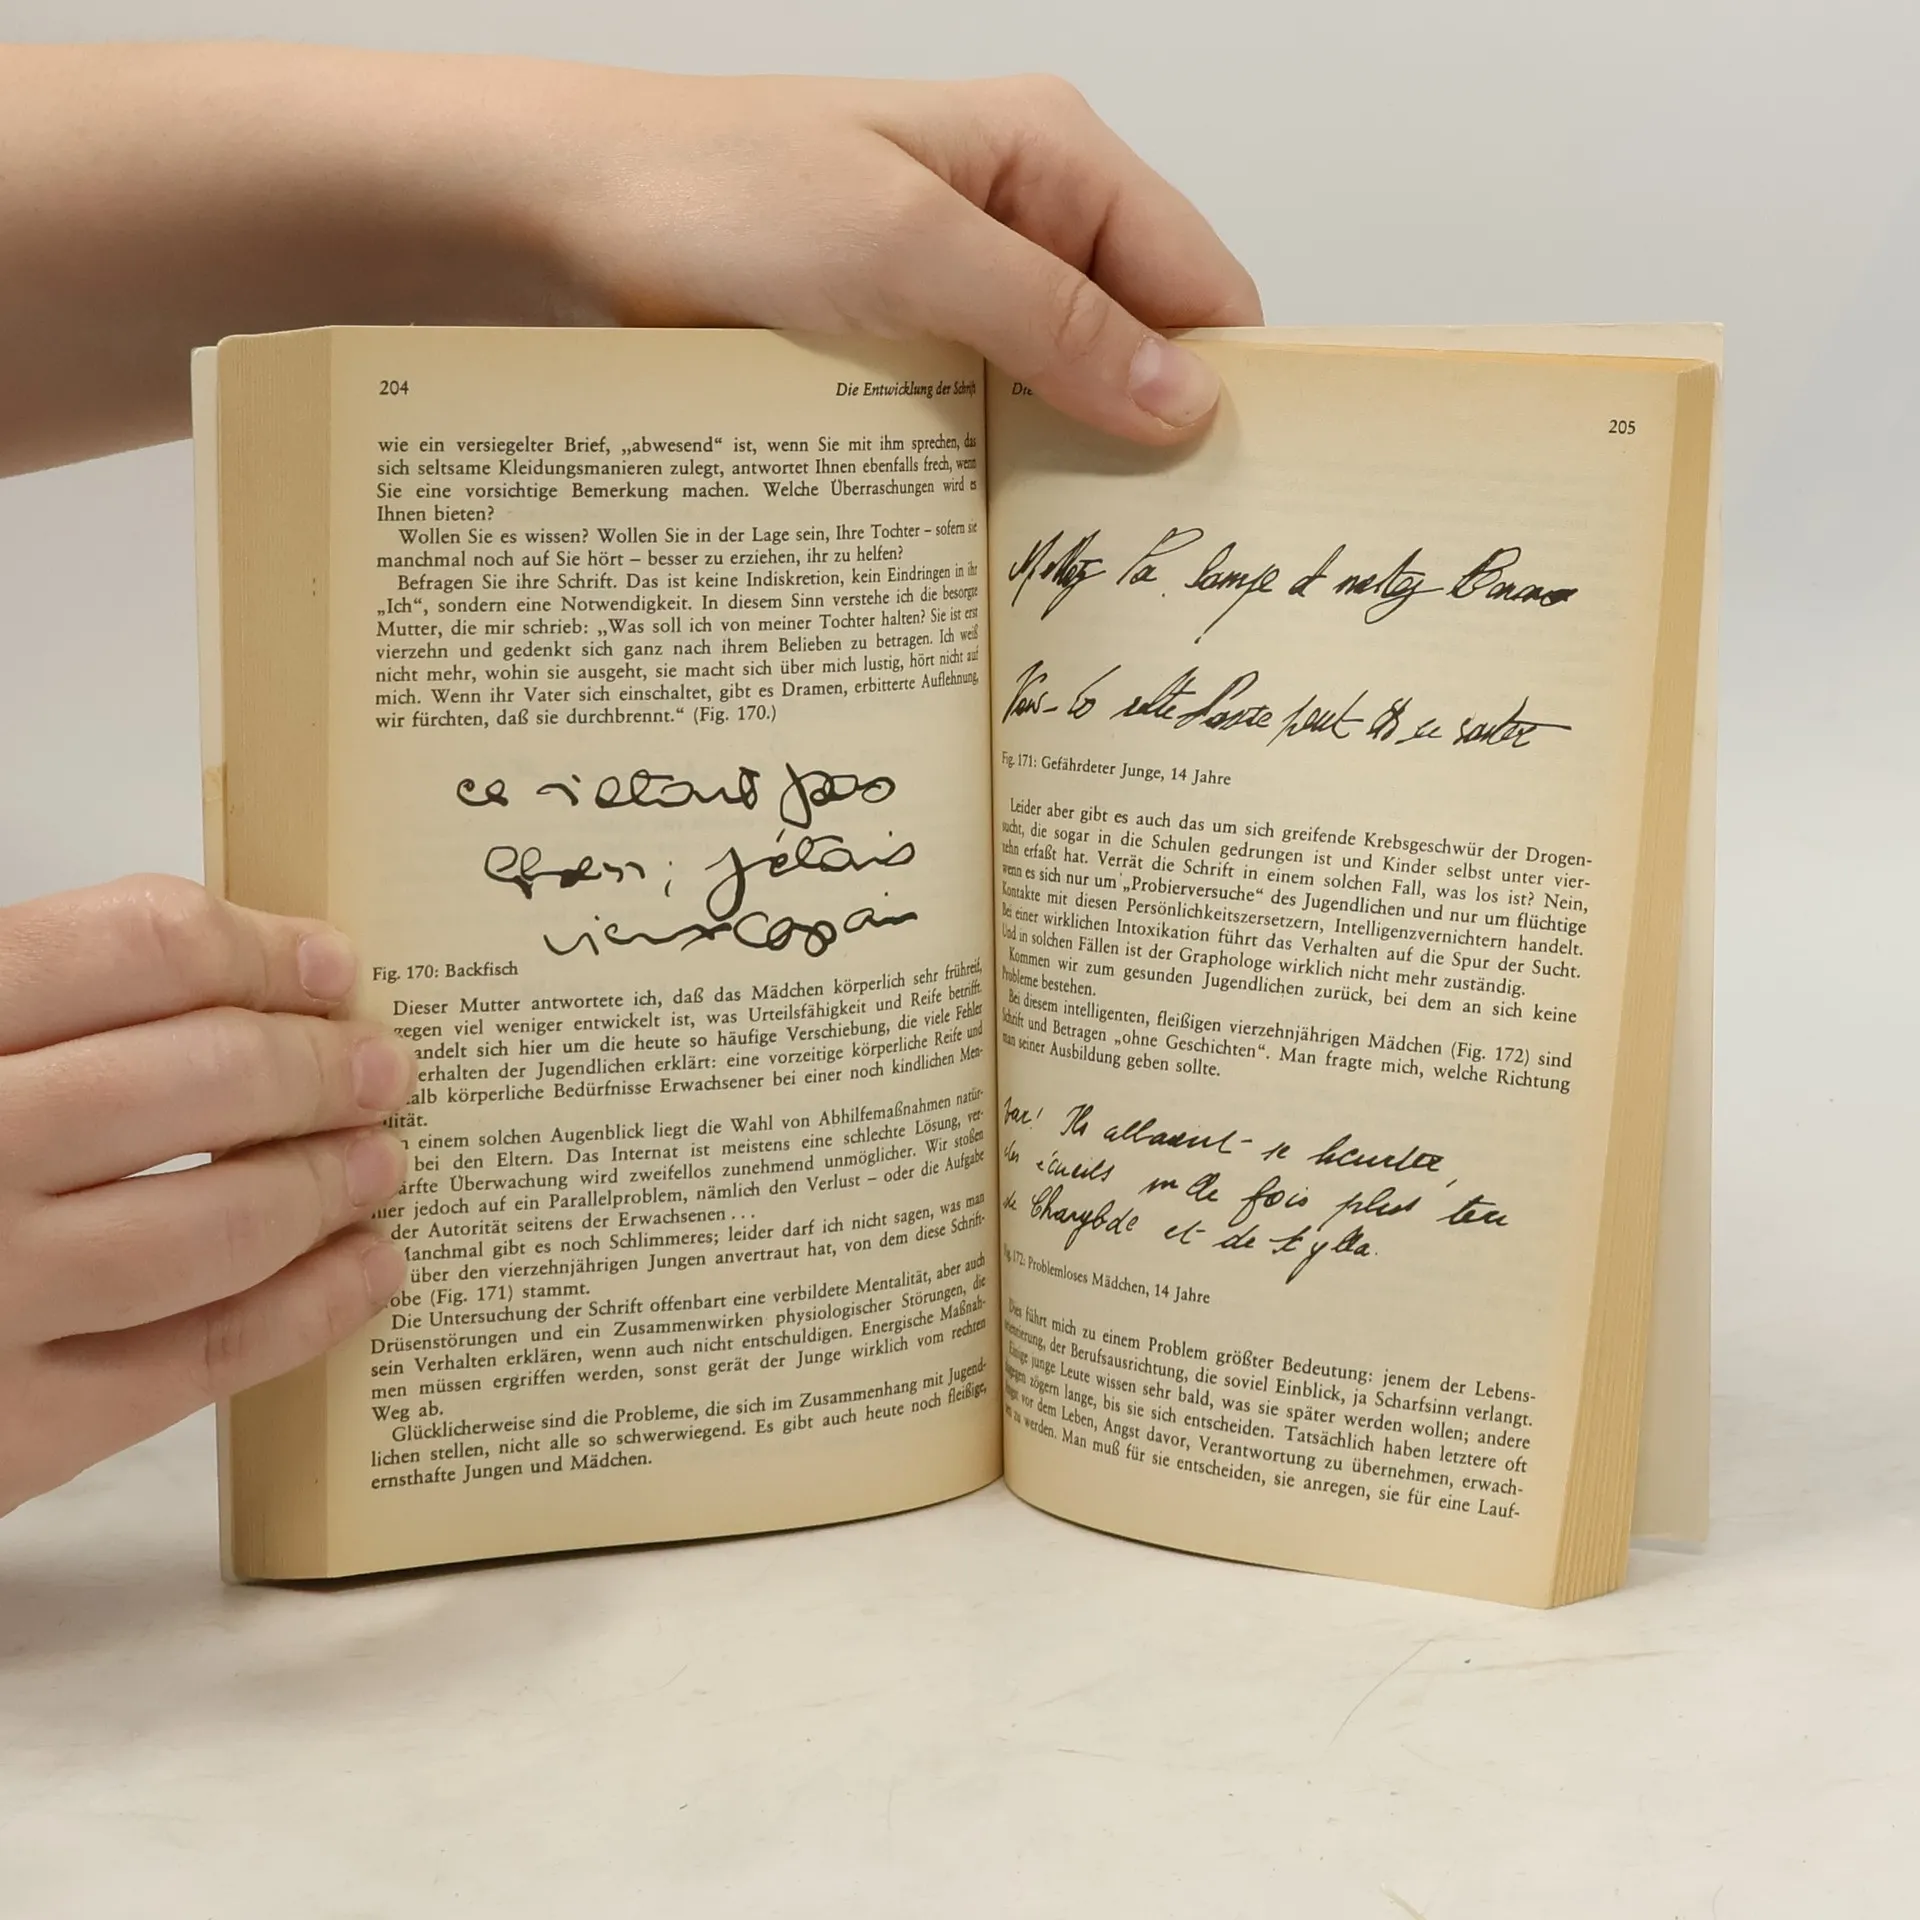 204
Die Entwicklung der Schrift
wie ein versiegelter Brief, „abwesend“ ist, wenn Sie mit ihm sprechen, das
sich seltsame Kleidungsmanieren zulegt, antwortet Ihnen ebenfalls frech, wenn
Sie eine vorsichtige Bemerkung machen. Welche Überraschungen wird es
Ihnen bieten?
Wollen Sie es wissen? Wollen Sie in der Lage sein, Ihre Tochter – sofern sie
manchmal noch auf Sie hört – besser zu erziehen, ihr zu helfen?
Befragen Sie ihre Schrift. Das ist keine Indiskretion, kein Eindringen in ihr
„Ich“, sondern eine Notwendigkeit. In diesem Sinn verstehe ich die besorgte
Mutter, die mir schrieb: „Was soll ich von meiner Tochter halten? Sie ist erst
vierzehn und gedenkt sich ganz nach ihrem Belieben zu betragen. Ich weiß
nicht mehr, wohin sie ausgeht, sie macht sich über mich lustig, hört nicht auf
mich. Wenn ihr Vater sich einschaltet, gibt es Dramen, erbitterte Auflehnung,
wir fürchten, daß sie durchbrennt.“ (Fig. 170.)
ce n'étant pas
; j'étais
vieux copain
Fig. 170: Backfisch
Dieser Mutter antwortete ich, daß das Mädchen körperlich sehr frühreif,
gegen viel weniger entwickelt ist, was Urteilsfähigkeit und Reife betrifft.
andelt sich hier um die heute so häufige Verschiebung, die viele Fehler
erhalten der Jugendlichen erklärt: eine vorzeitige körperliche Reife und
alb körperliche Bedürfnisse Erwachsener bei einer noch kindlichen Men-
lität.
n einem solchen Augenblick liegt die Wahl von Abhilfemaßnahmen natür-
bei den Eltern. Das Internat ist meistens eine schlechte Lösung, ver-
ärfte Überwachung wird zweifellos zunehmend unmöglicher. Wir stoßen
hier jedoch auf ein Parallelproblem, nämlich den Verlust – oder die Aufgabe
der Autorität seitens der Erwachsenen . . .
Manchmal gibt es noch Schlimmeres; leider darf ich nicht sagen, was man
über den vierzehnjährigen Jungen anvertraut hat, von dem diese Schrift-
obe (Fig. 171) stammt.
Die Untersuchung der Schrift offenbart eine verbildete Mentalität, aber auch
Drüsenstörungen und ein Zusammenwirken physiologischer Störungen, die
sein Verhalten erklären, wenn auch nicht entschuldigen. Energische Maßnah-
men müssen ergriffen werden, sonst gerät der Junge wirklich vom rechten
Weg ab.
Glücklicherweise sind die Probleme, die sich im Zusammenhang mit Jugend-
lichen stellen, nicht alle so schwerwiegend. Es gibt auch heute noch fleißige,
ernsthafte Jungen und Mädchen.
Die
205
la lampe et
cette peut se
Fig. 171: Gefährdeter Junge, 14 Jahre
Leider aber gibt es auch das um sich greifende Krebsgeschwür der Drogen-
sucht, die sogar in die Schulen gedrungen ist und Kinder selbst unter vier-
zehn erfaßt hat. Verrät die Schrift in einem solchen Fall, was los ist? Nein,
wenn es sich nur um „Probierversuche“ des Jugendlichen und nur um flüchtige
Kontakte mit diesen Persönlichkeitszersetzern, Intelligenzvernichtern handelt.
Bei einer wirklichen Intoxikation führt das Verhalten auf die Spur der Sucht.
Und in solchen Fällen ist der Graphologe wirklich nicht mehr zuständig.
Kommen wir zum gesunden Jugendlichen zurück, bei dem an sich keine
Probleme bestehen.
Bei diesem intelligenten, fleißigen vierzehnjährigen Mädchen (Fig. 172) sind
Schrift und Betragen „ohne Geschichten“. Man fragte mich, welche Richtung
man seiner Ausbildung geben sollte.
bar! Ils allaient se heurter,
des écueils mille fois plus
de Charybde et de Skylla.
Fig. 172: Problemloses Mädchen, 14 Jahre
Dies führt mich zu einem Problem größter Bedeutung: jenem der Lebens-
orientierung, der Berufsausrichtung, die soviel Einblick, ja Scharfsinn verlangt.
Einige junge Leute wissen sehr bald, was sie später werden wollen; andere
dagegen zögern lange, bis sie sich entscheiden. Tatsächlich haben letztere oft
Angst vor dem Leben, Angst davor, Verantwortung zu übernehmen, erwach-
sen zu werden. Man muß für sie entscheiden, sie anregen, sie für eine Lauf-